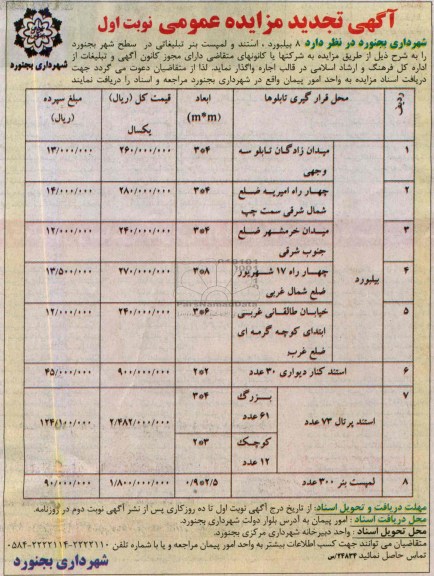 آگهی تجدید مزایده عمومی نوبت اول
شهرداری بجنورد
شهرداری بجنورد در نظر دارد ۸ بیلبورد ، استند و لمپست بنر تبلیغاتی در سطح شهر بجنورد
را به شرح ذیل از طریق مزایده به شرکتها یا کانونهای متقاضی دارای مجوز کانون آگهی و تبلیغات از
اداره کل فرهنگ و ارشاد اسلامی در قالب اجاره واگذار نماید. لذا از متقاضیان دعوت می گردد جهت
دریافت اسناد مزایده به واحد امور پیمان واقع در شهرداری بجنورد مراجعه و اسناد را دریافت نمایند
ردیف محل قرار گیری تابلوها ابعاد (m*m) قیمت کل (ریال) یکسال مبلغ سپرده (ریال)
بیلبورد
۱ میدان زادگان تابلو سه وجهی ۳*۴ ۲۶۰/۰۰۰/۰۰۰ ۱۳/۰۰۰/۰۰۰
۲ چهار راه امیریه ضلع شمال شرقی سمت چپ ۳*۴ ۲۸۰/۰۰۰/۰۰۰ ۱۴/۰۰۰/۰۰۰
۳ میدان خرمشهر ضلع جنوب شرقی ۳*۴ ۲۴۰/۰۰۰/۰۰۰ ۱۲/۰۰۰/۰۰۰
۴ چهار راه ۱۷ شهریور ضلع شمال غربی ۳*۸ ۲۷۰/۰۰۰/۰۰۰ ۱۳/۵۰۰/۰۰۰
۵ خیابان طالقانی غربی ابتدای کوچه گرمه ای ضلع غرب ۳*۶ ۲۴۰/۰۰۰/۰۰۰ ۱۲/۰۰۰/۰۰۰
۶ استند کنار دیواری ۳۰ عدد ۲*۲ ۹۰۰/۰۰۰/۰۰۰ ۴۵/۰۰۰/۰۰۰
۷ استند پرتال ۷۳ عدد بزرگ ۶۱ عدد ۳*۴ ۲/۴۸۲/۰۰۰/۰۰۰ ۱۲۴/۱۰۰/۰۰۰
کوچک ۱۲ عدد ۲*۳
۸ لمپست بنر ۳۰۰ عدد ۰/۹*۲/۵ ۱/۸۰۰/۰۰۰/۰۰۰ ۹۰/۰۰۰/۰۰۰
مهلت دریافت و تحویل اسناد: از تاریخ درج آگهی نوبت اول تا ده روزکاری پس از نشر آگهی نوبت دوم در روزنامه.
محل دریافت اسناد : امور پیمان به آدرس بلوار دولت شهرداری بجنورد.
محل تحویل اسناد : واحد دبیرخانه شهرداری مرکزی بجنورد.
متقاضیان می توانند جهت کسب اطلاعات بیشتر به واحد امور پیمان مراجعه و یا با شماره تلفن ۲۲۲۲۱۱۰-۲۲۲۲۱۱۴-۰۵۸۴
تماس حاصل نمائید ۲۴۸۳۴/س
شهرداری بجنورد